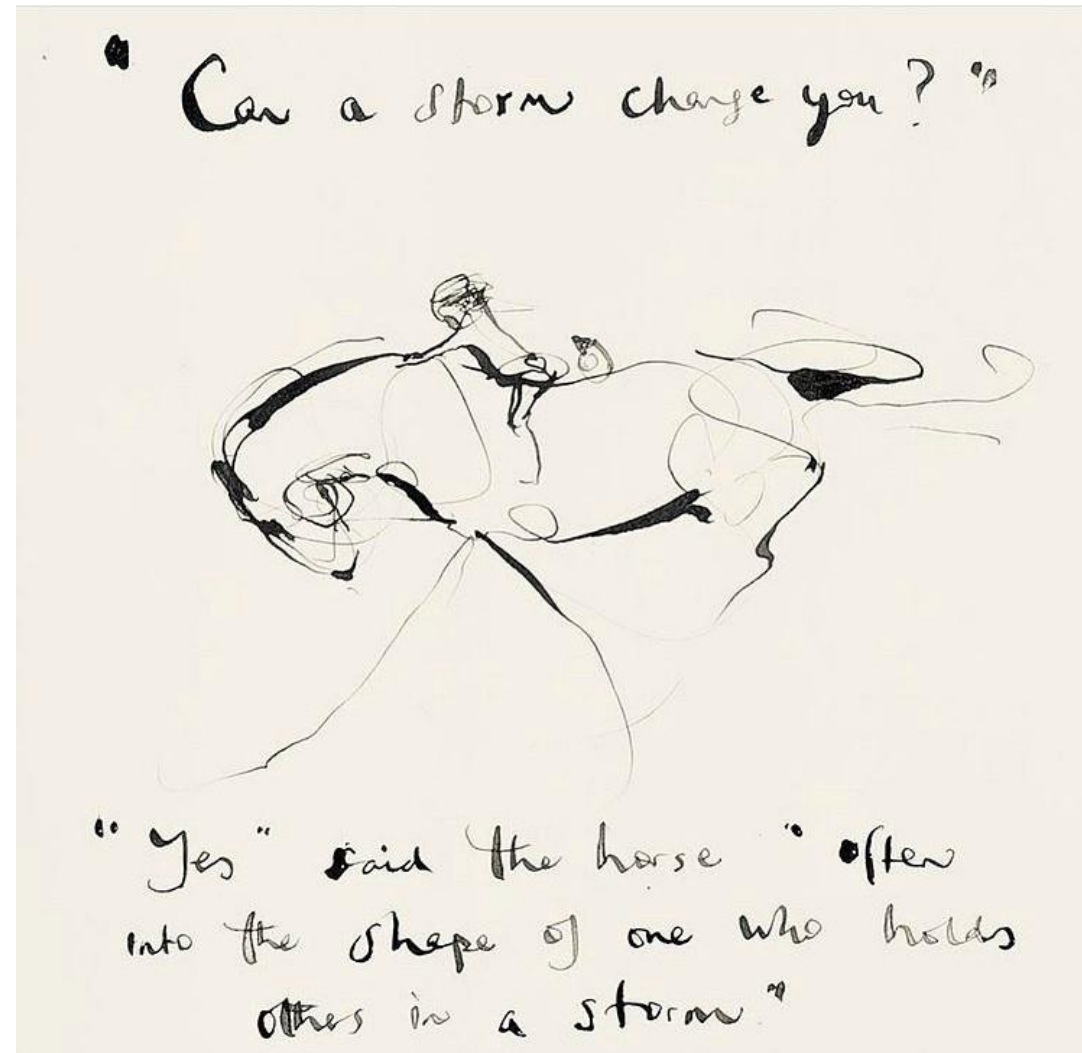 "Can a storm change you?"
"Yes" said the horse "often
into the shape of one who holds
others in a storm"